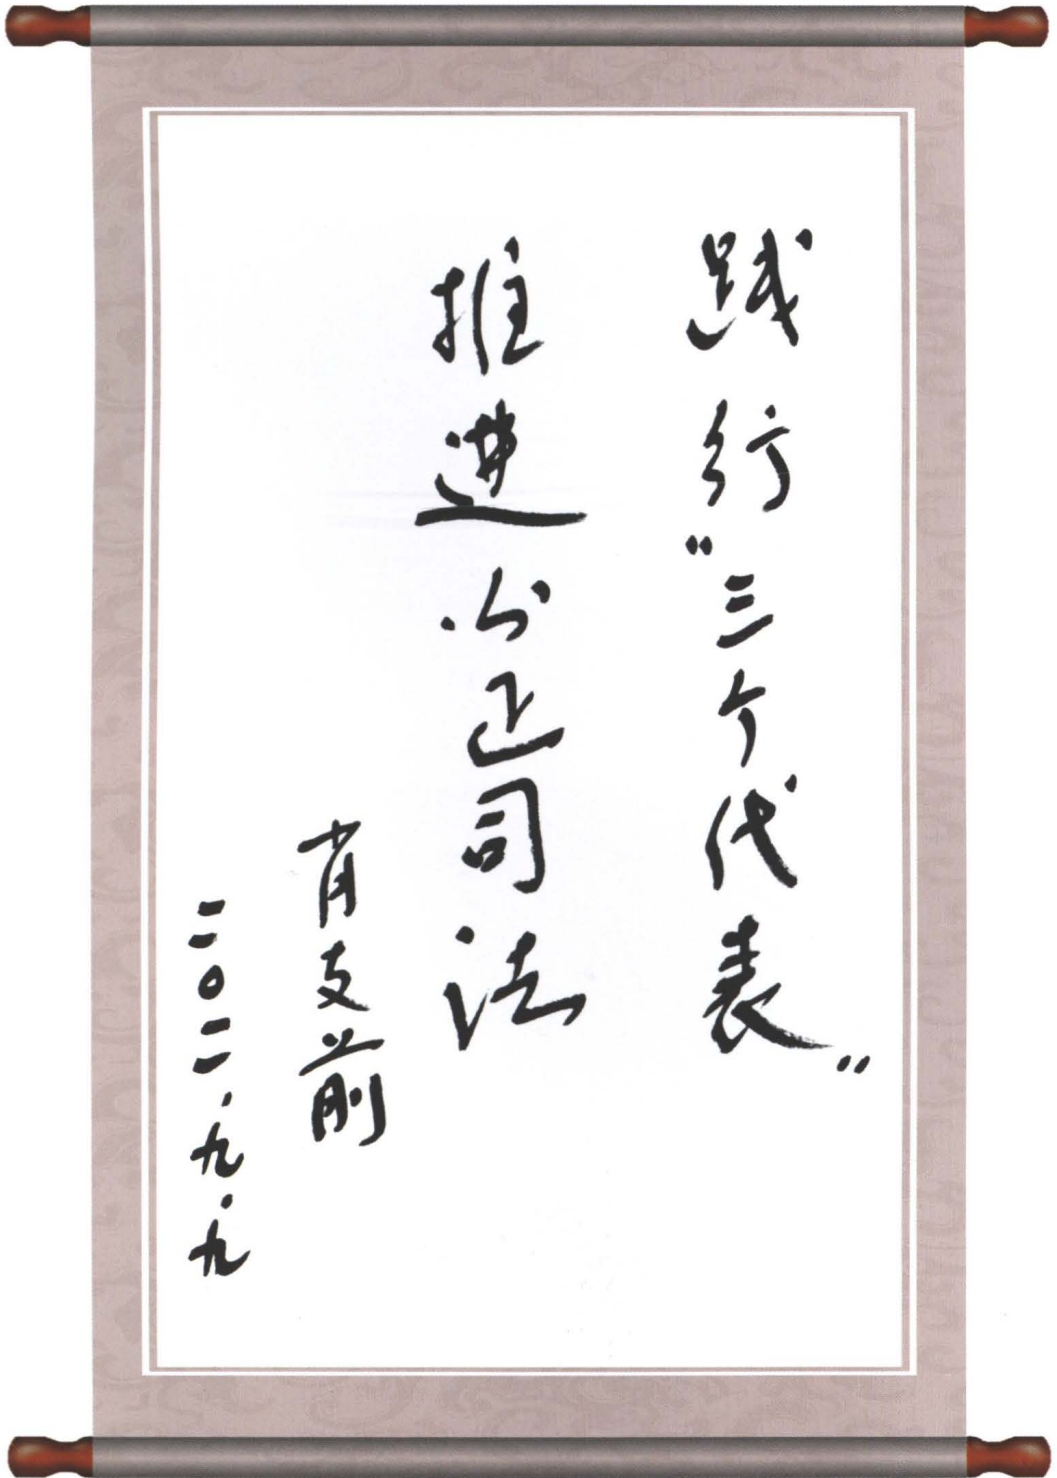 践行“三个代表”
推进公正司法
肖支前
二〇一一.九.九